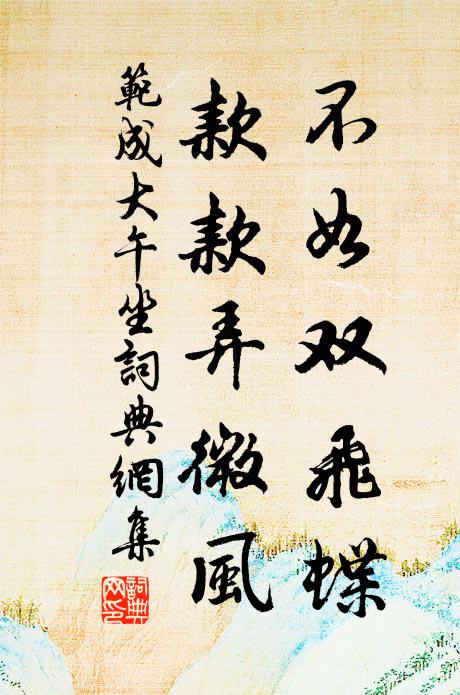 不如双飛蝶
款款弄微風
範成大午坐詞典網集
詞典